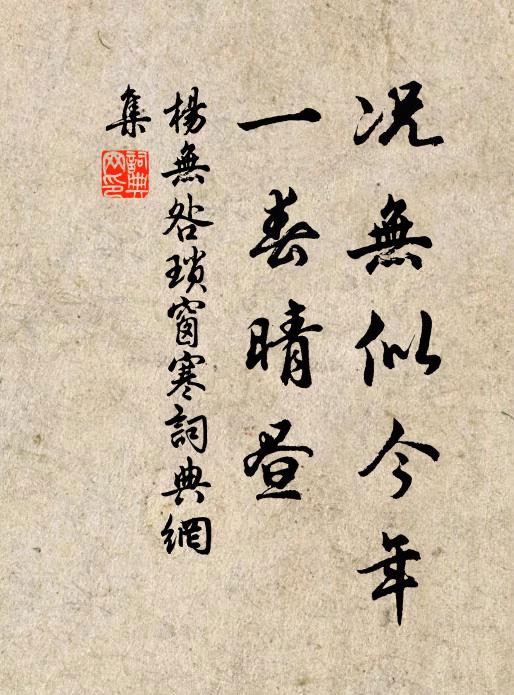 况無似今年
一春晴昼
楊無咎瑣窗寒詞典網
集
詞典
网印